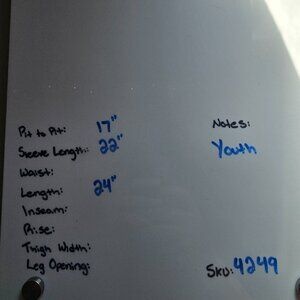 Pit to Pit: 17"
Sleeve Length: 22"
Waist:
Length: 24"
Inseam:
Rise:
Thigh Width:
Leg Opening:
Notes:
Youth
SKU: 4249